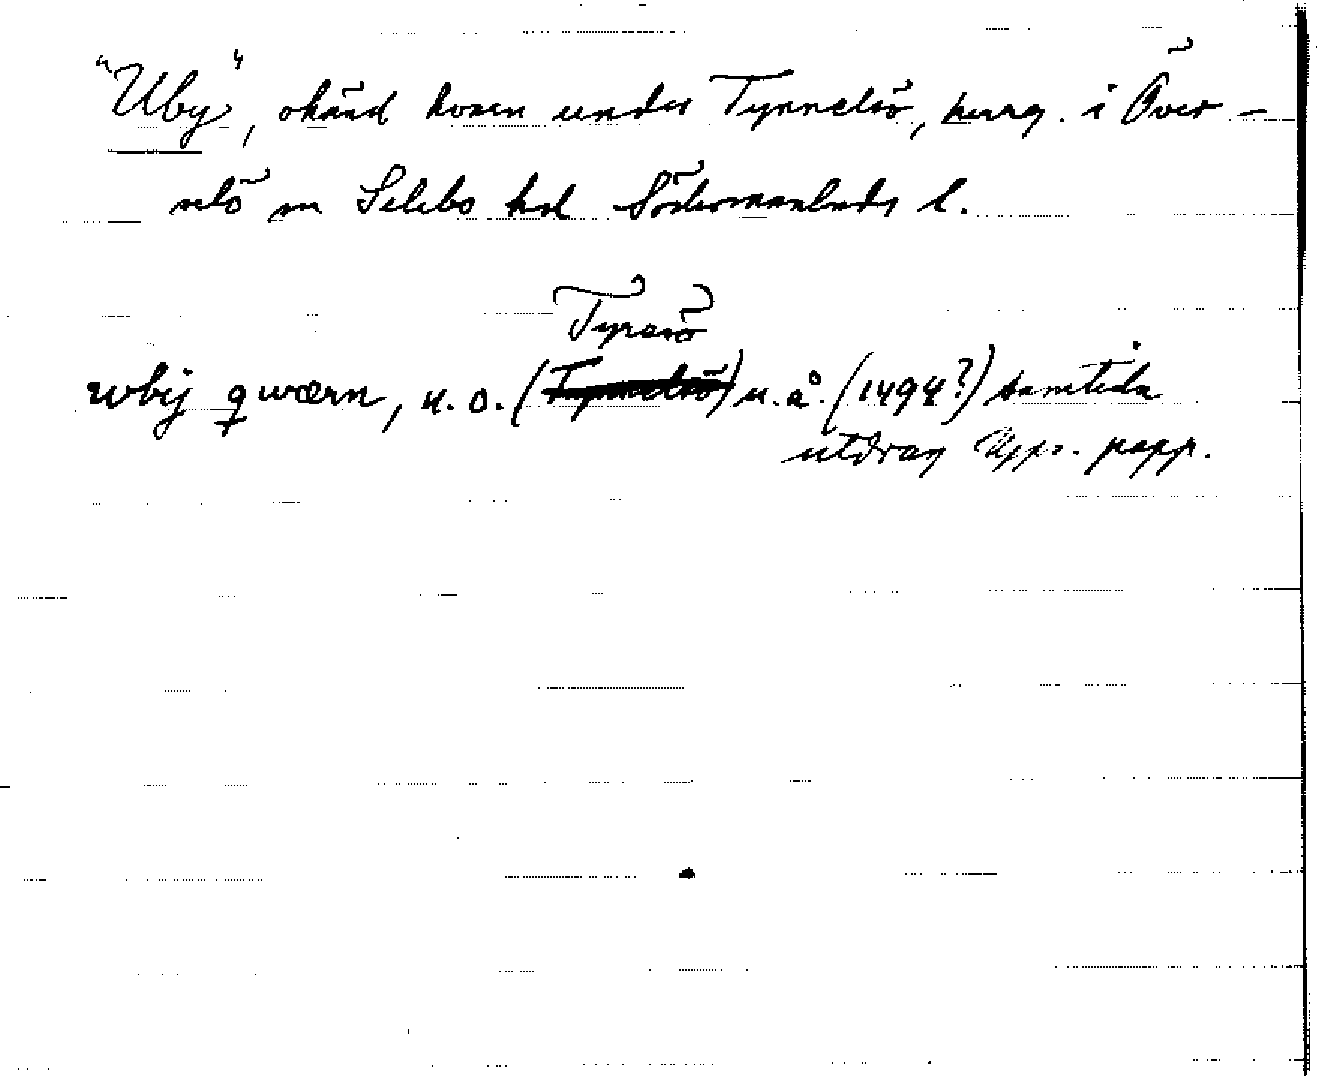 "Uby", okänd kvarn under Tynnelsö, herrg. i Över-
selö sn Selebo hd Södermanlands l.
Tyresö
wbij qwærn, u. o. (Tynnelsö) u. å. (1494?) samtida
utdrag Upps. papp.